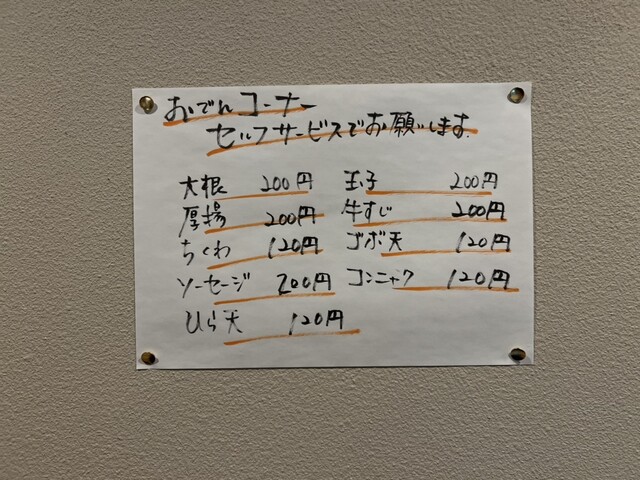 おでんコーナー
セルフサービスでお願いします.
大根 200円 玉子 200円
厚揚 200円 牛すじ 200円
ちくわ 120円 ゴボ天 120円
ソーセージ 200円 コンニャク 120円
ひら天 120円